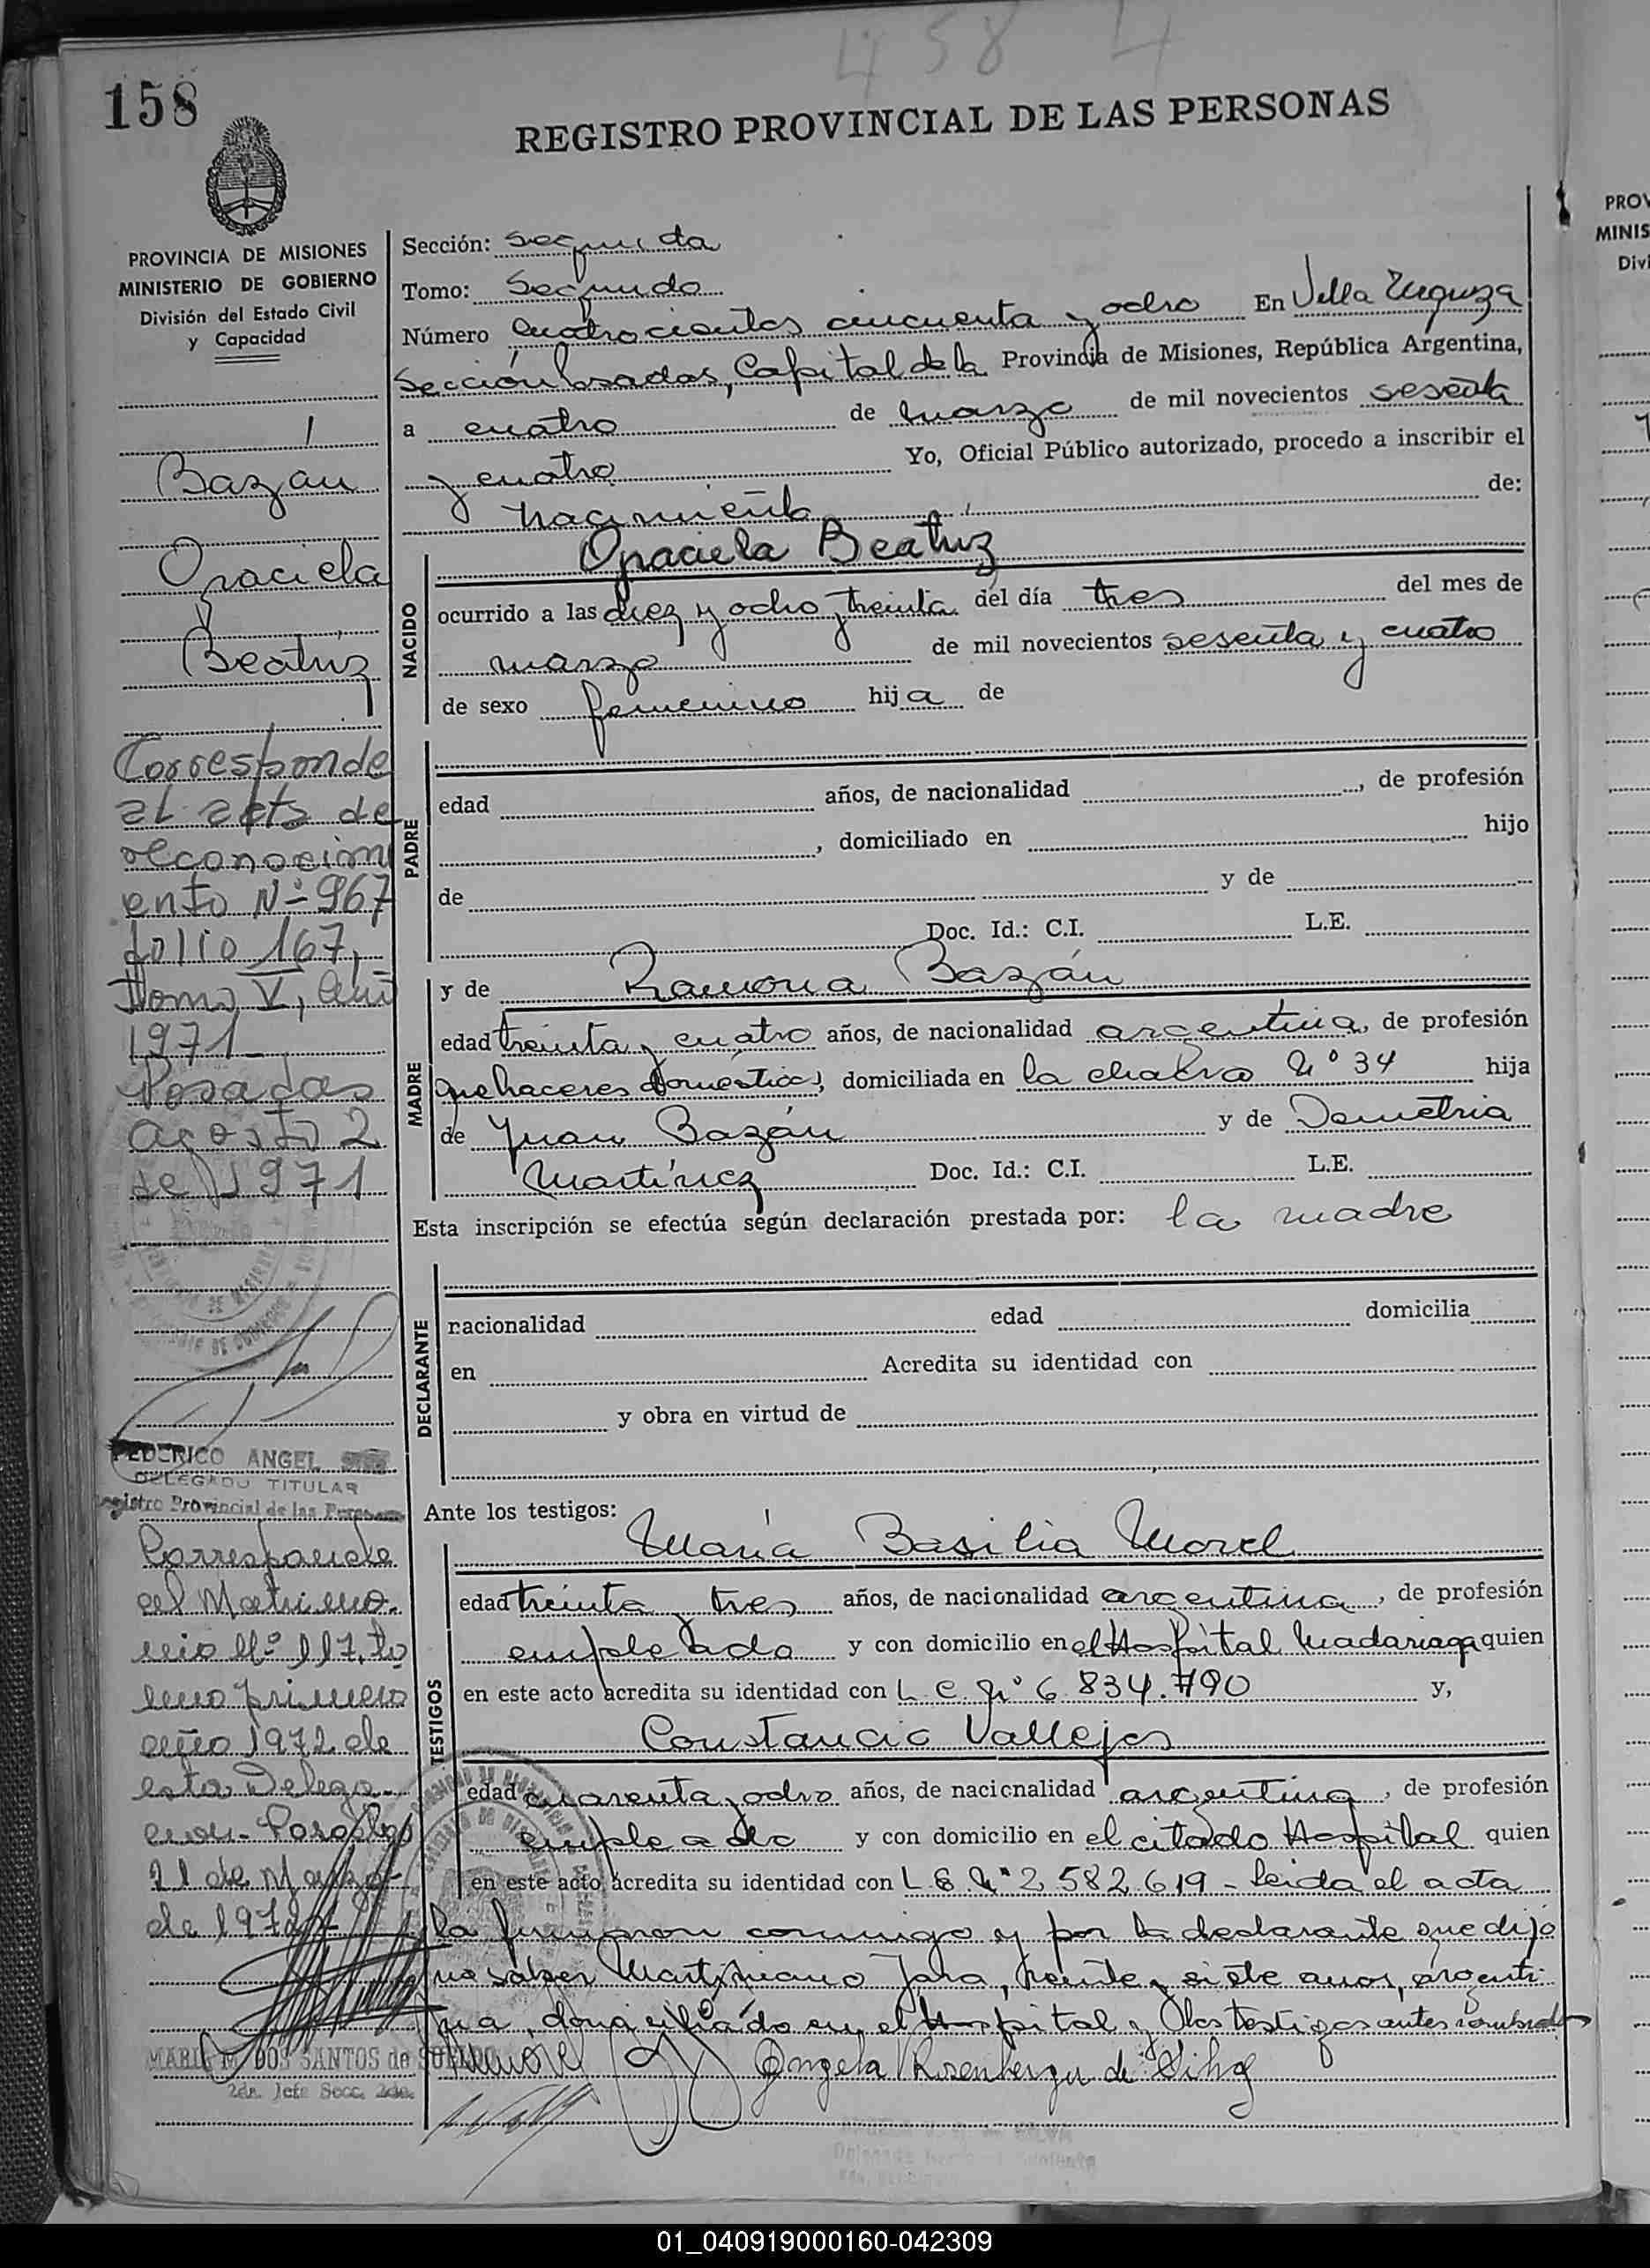 458 4
158
REGISTRO PROVINCIAL DE LAS PERSONAS
PROVINCIA DE MISIONES
MINISTERIO DE GOBIERNO
División del Estado Civil
y Capacidad
Bazan
Graciela
Beatriz
Corresponde
al acta de
reconocimi
ento Nº 967
folio 167,
Tomo V, Año
1971
Posadas
agosto 2
de 1971
FEDERICO ANGEL
DELEGADO TITULAR
Registro Provincial de las Personas
Corresponde
al Matrimo-
nio Nº 117, To
mo primero
año 1972 de
esta Delega-
cion - Posadas
21 de Marzo
de 1972
MARIA M. DOS SANTOS de SOTELO
2da. Jefe Secc. 2da.
Sección: segunda
Tomo: Segundo
Número cuatrocientos cincuenta y ocho En Villa Urquiza
Sección Posadas, Capital de la Provincia de Misiones, República Argentina,
a cuatro de marzo de mil novecientos sesenta
y cuatro Yo, Oficial Público autorizado, procedo a inscribir el
nacimiento de:
NACIDO
Graciela Beatriz
ocurrido a las diez y ocho, treinta del día tres del mes de
marzo de mil novecientos sesenta y cuatro
de sexo femenino hija de
PADRE
edad años, de nacionalidad , de profesión
, domiciliado en hijo
de y de
Doc. Id.: C.I. L.E.
MADRE
y de Ramona Bazán
edad treinta y cuatro años, de nacionalidad argentina, de profesión
quehaceres domésticos, domiciliada en la chacra Nº 34 hija
de Juan Bazán y de Demetria
Martínez Doc. Id.: C.I. L.E.
Esta inscripción se efectúa según declaración prestada por: la madre
DECLARANTE
nacionalidad edad domicilia
en Acredita su identidad con
y obra en virtud de
Ante los testigos:
TESTIGOS
María Basilia Morel
edad treinta y tres años, de nacionalidad argentina, de profesión
empleada y con domicilio en el Hospital Madariaga quien
en este acto acredita su identidad con L.C. Nº 6.834.790 y,
Constancio Vallejos
edad cuarenta y ocho años, de nacionalidad argentina, de profesión
empleado y con domicilio en el citado Hospital quien
en este acto acredita su identidad con L.E. Nº 2.582.619 - Leida el acta
la firmaron conmigo y por la declarante que dijo
no saber Martiniano Jara, treinta y siete años, argenti
na, domiciliado en el Hospital y los testigos antes nombrados
Morel Angela Rosenberger de Silva
01_040919000160-042309